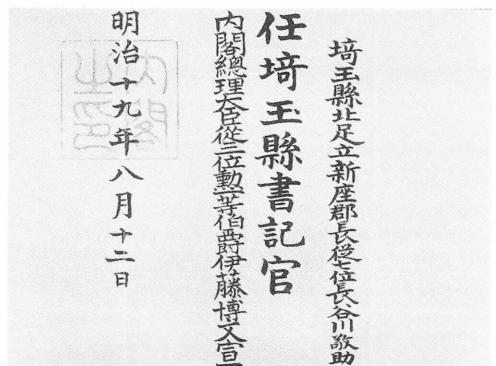 埼玉縣北足立新座郡長從七位長谷川敬助
任埼玉縣書記官
內閣總理大臣從三位勳一等伯爵伊藤博文宣
明治十九年八月十二日
內閣之印